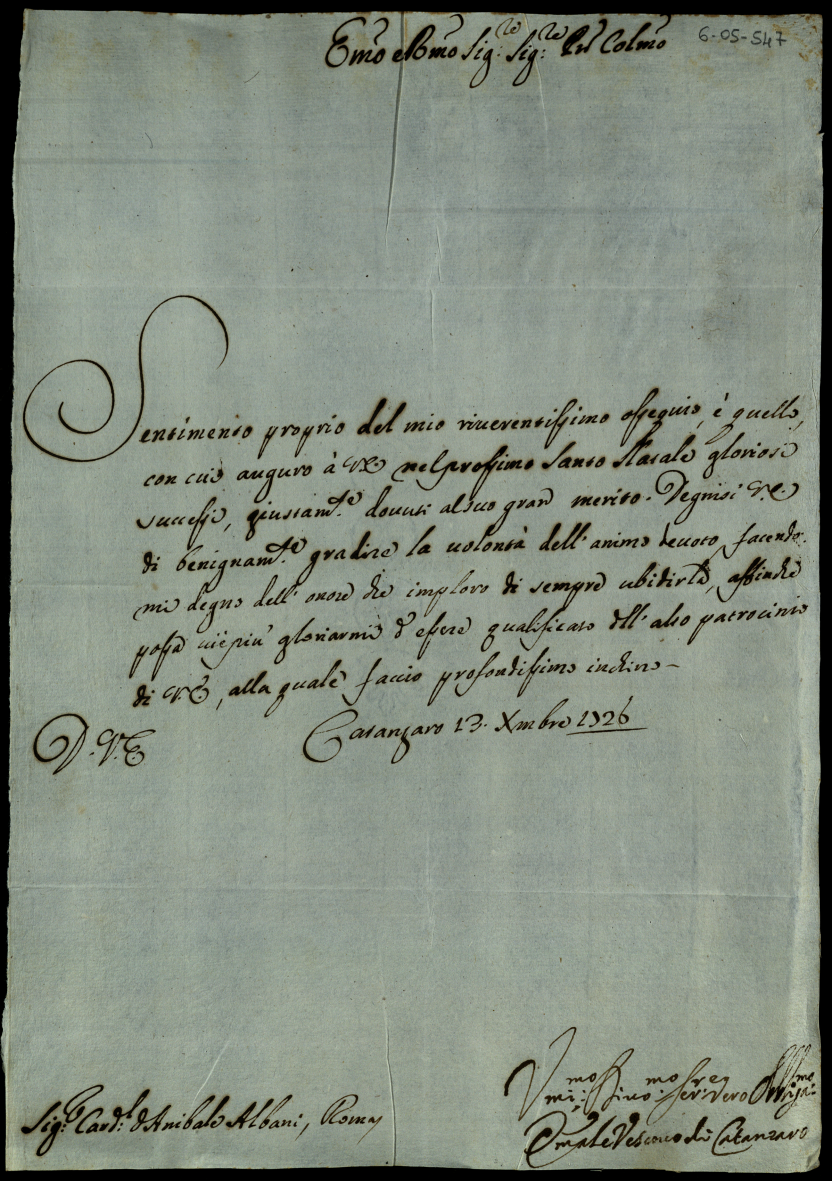 6-05-547
Emo e Rmo Sig.re Sig.re Pne Colmo
Sentimento proprio del mio riverentissimo ossequio, è quello,
con cui auguro à V.E. nel prossimo Santo Natale gloriosi
successi, giustam.te dovuti al suo gran merito. Degnisi V.E.
di benignam.te gradire la volontà dell'animo devoto, facendo-
mi degno dell'onore che imploro di sempre ubidirla, affinche
possa viépiu gloriarmi d'essere qualificato dell'alto patrocinio
di V.E., alla quale faccio profondissimo inchino
Catanzaro 13. Xmbre 1726
D. V. E
Sig.r Card.l d'Anibale Albani, Roma
Vmi:mo Ser.re vero
Vescovo di Catanzaro